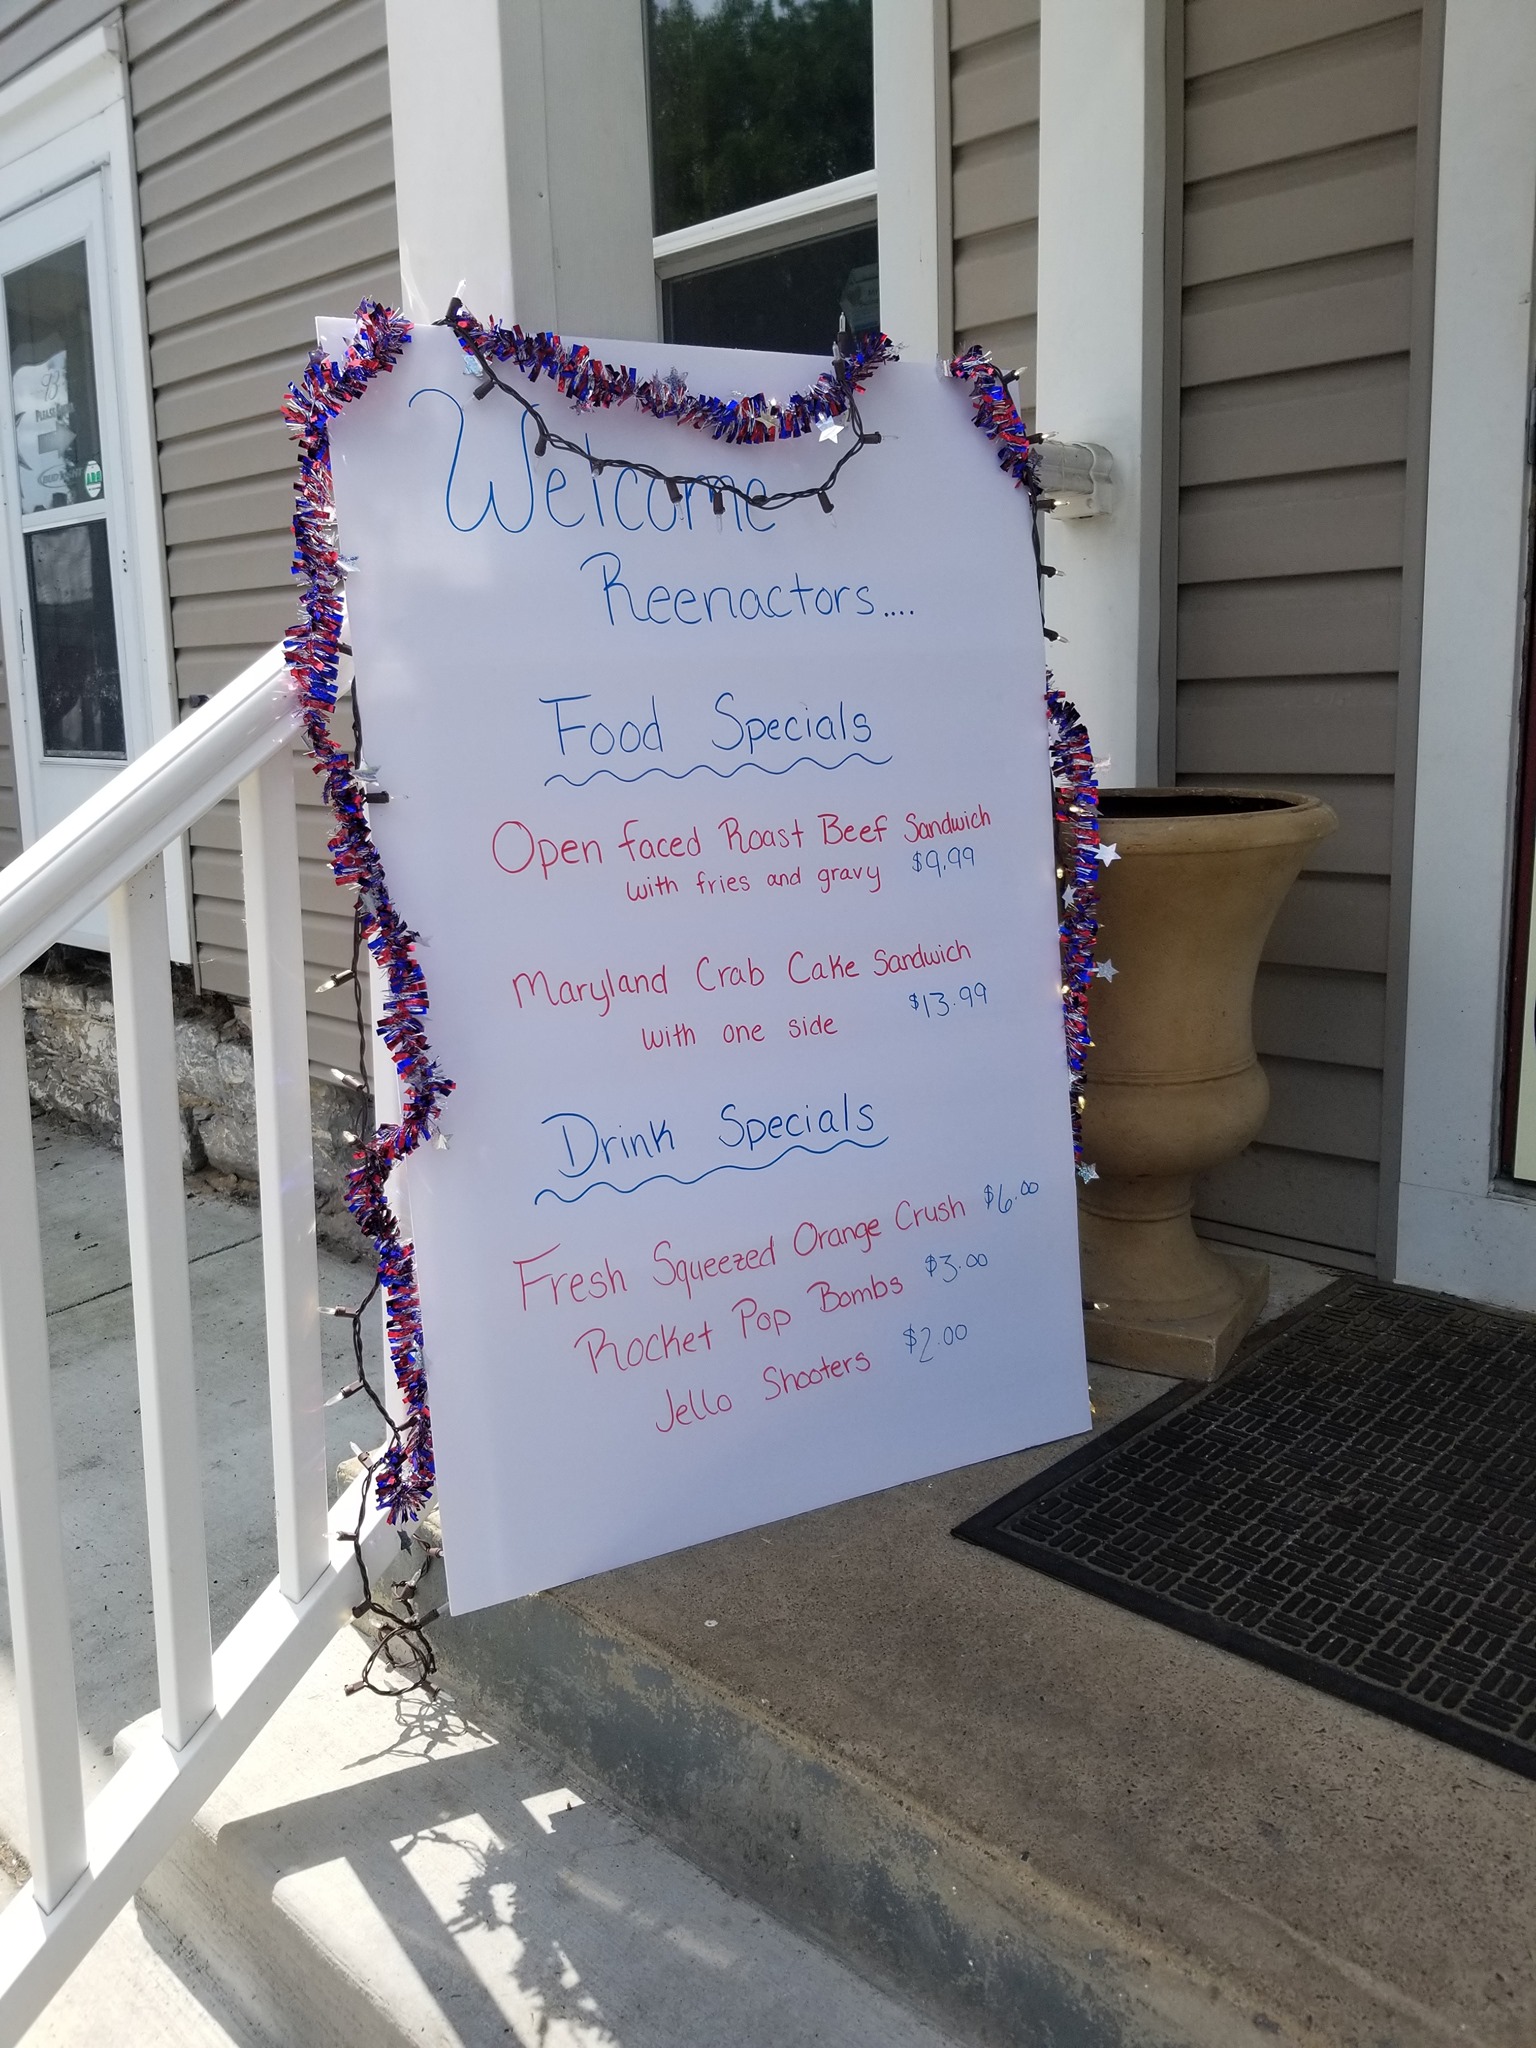 Welcome
Reenactors....
Food Specials
Open faced Roast Beef Sandwich
with fries and gravy $9.99
Maryland Crab Cake Sandwich
with one side $13.99
Drink Specials
Fresh Squeezed Orange Crush $6.00
Rocket Pop Bombs $3.00
Jello Shooters $2.00